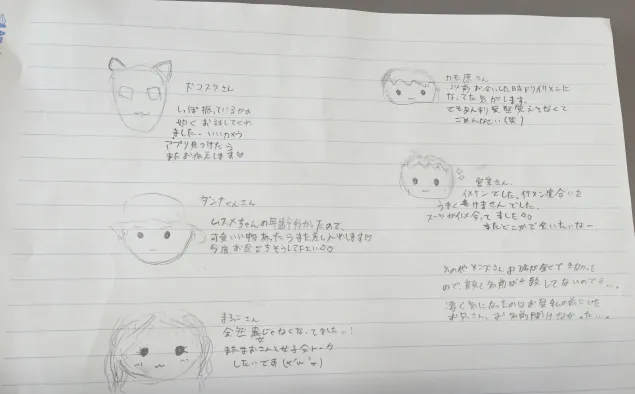 犬コスプレさん
しっぽ振っているかの
如くお話してくれ
ました…いいカメラ
アプリ見つけたら
またお伝えします
タンナくんさん
ムスメちゃんの年齢分かったので、
可愛い物あったらまた差し入れします!!
今度お茶ごちそうして下さい
まろっこさん
全然
じゃなくなってました…!
またまおさんと女子会トーク
したいです
カモ原さん
以前お会いした時よりイケメンに
なってた気がします。
でもあんまり髪型変えてなくて
ごめんなさい(笑)
営業さん。
イケメンでした。イケメン度合いを
うまく書けませんでした。
スーツがイメ合ってました
またどこかで会いたいなー
その他メンズさんお話が全くできなかった
ので顔と名前が一致してないのです…。
凄く気になったのはお見
お兄さん。お名前聞けなかった…。